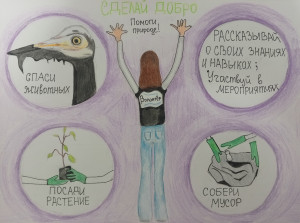 СДЕЛАЙ ДОБРО
Помоги
природе!
СПАСИ
ЖИВОТНЫХ
РАССКАЗЫВАЙ
О СВОИХ ЗНАНИЯХ
И НАВЫКАХ;
УЧАСТВУЙ В
МЕРОПРИЯТИЯХ
Волонтёр
ПОСАДИ
РАСТЕНИЕ
СОБЕРИ
МУСОР